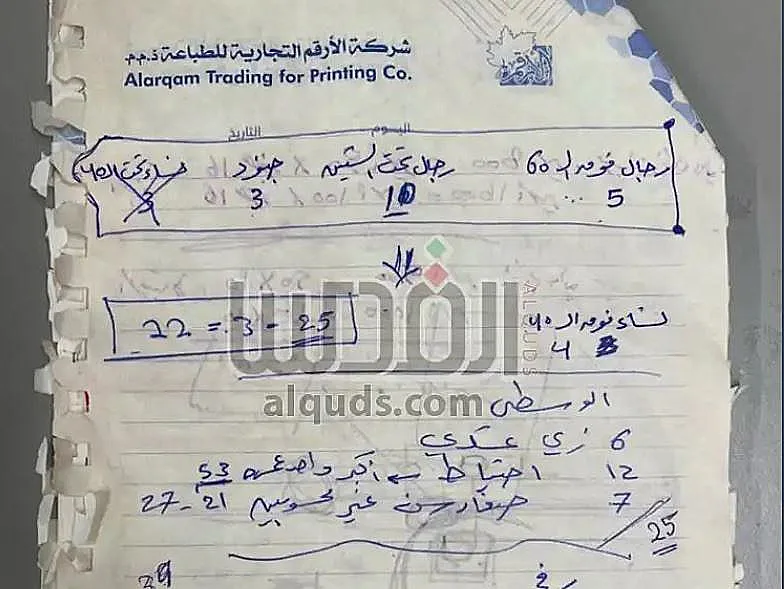 شركة الأرقم التجارية للطباعة ذ.م.م
Alarqam Trading for Printing Co.
اليوم التاريخ
رجال فوق الـ 60 رجال تحت الستين جنود نساء تحت الـ 40
5 10 3 3
نساء فوق الـ 40
4
22 = 3 - 25
القدس
ALQUDS
alquds.com
الوسطى
6 زي عسكري
12 احتياط أكبر واحد عمره 53
7 صغار سن غير محسوبين 21 - 27
25